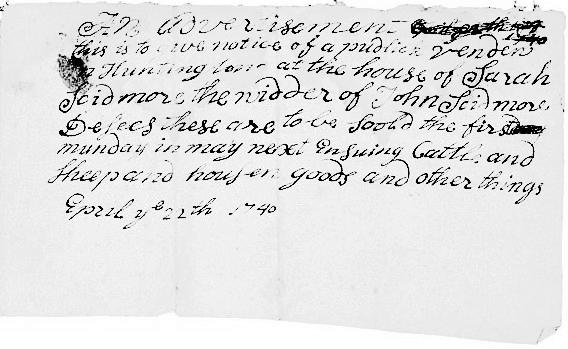 An Advertisement
this is to give notice of a publick vendew
in Huntingtown at the house of Sarah
Scidmore the widder of John Scidmore
Deses these are to be soold the first
munday in may next Ensuing Cattle and
sheep and housen goods and other things
Epril ye 22th 1740